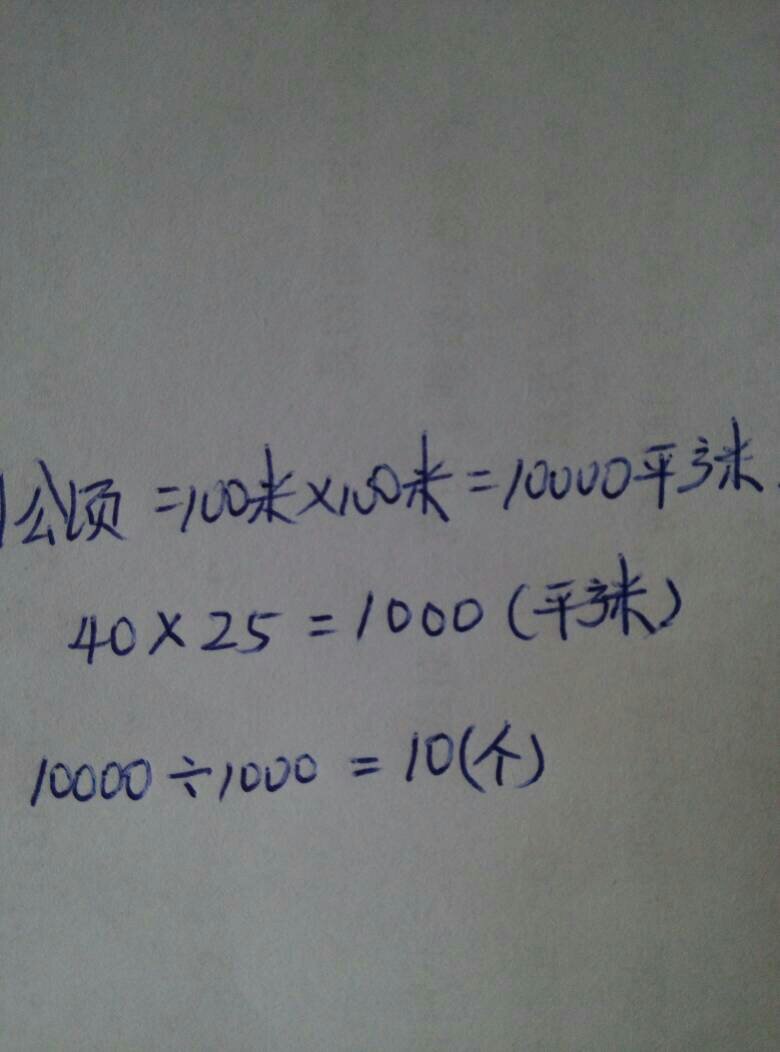 1公顷=100米×100米=10000平方米.
40×25=1000(平方米)
10000÷1000=10(个)